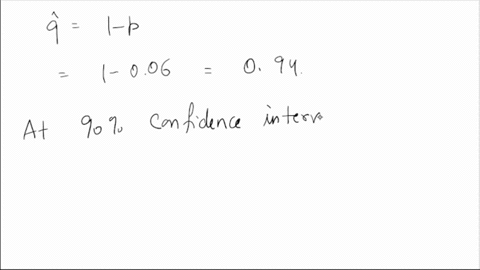 q̂ = 1-p
= 1-0.06 = 0.94.
At 90% confidence interv